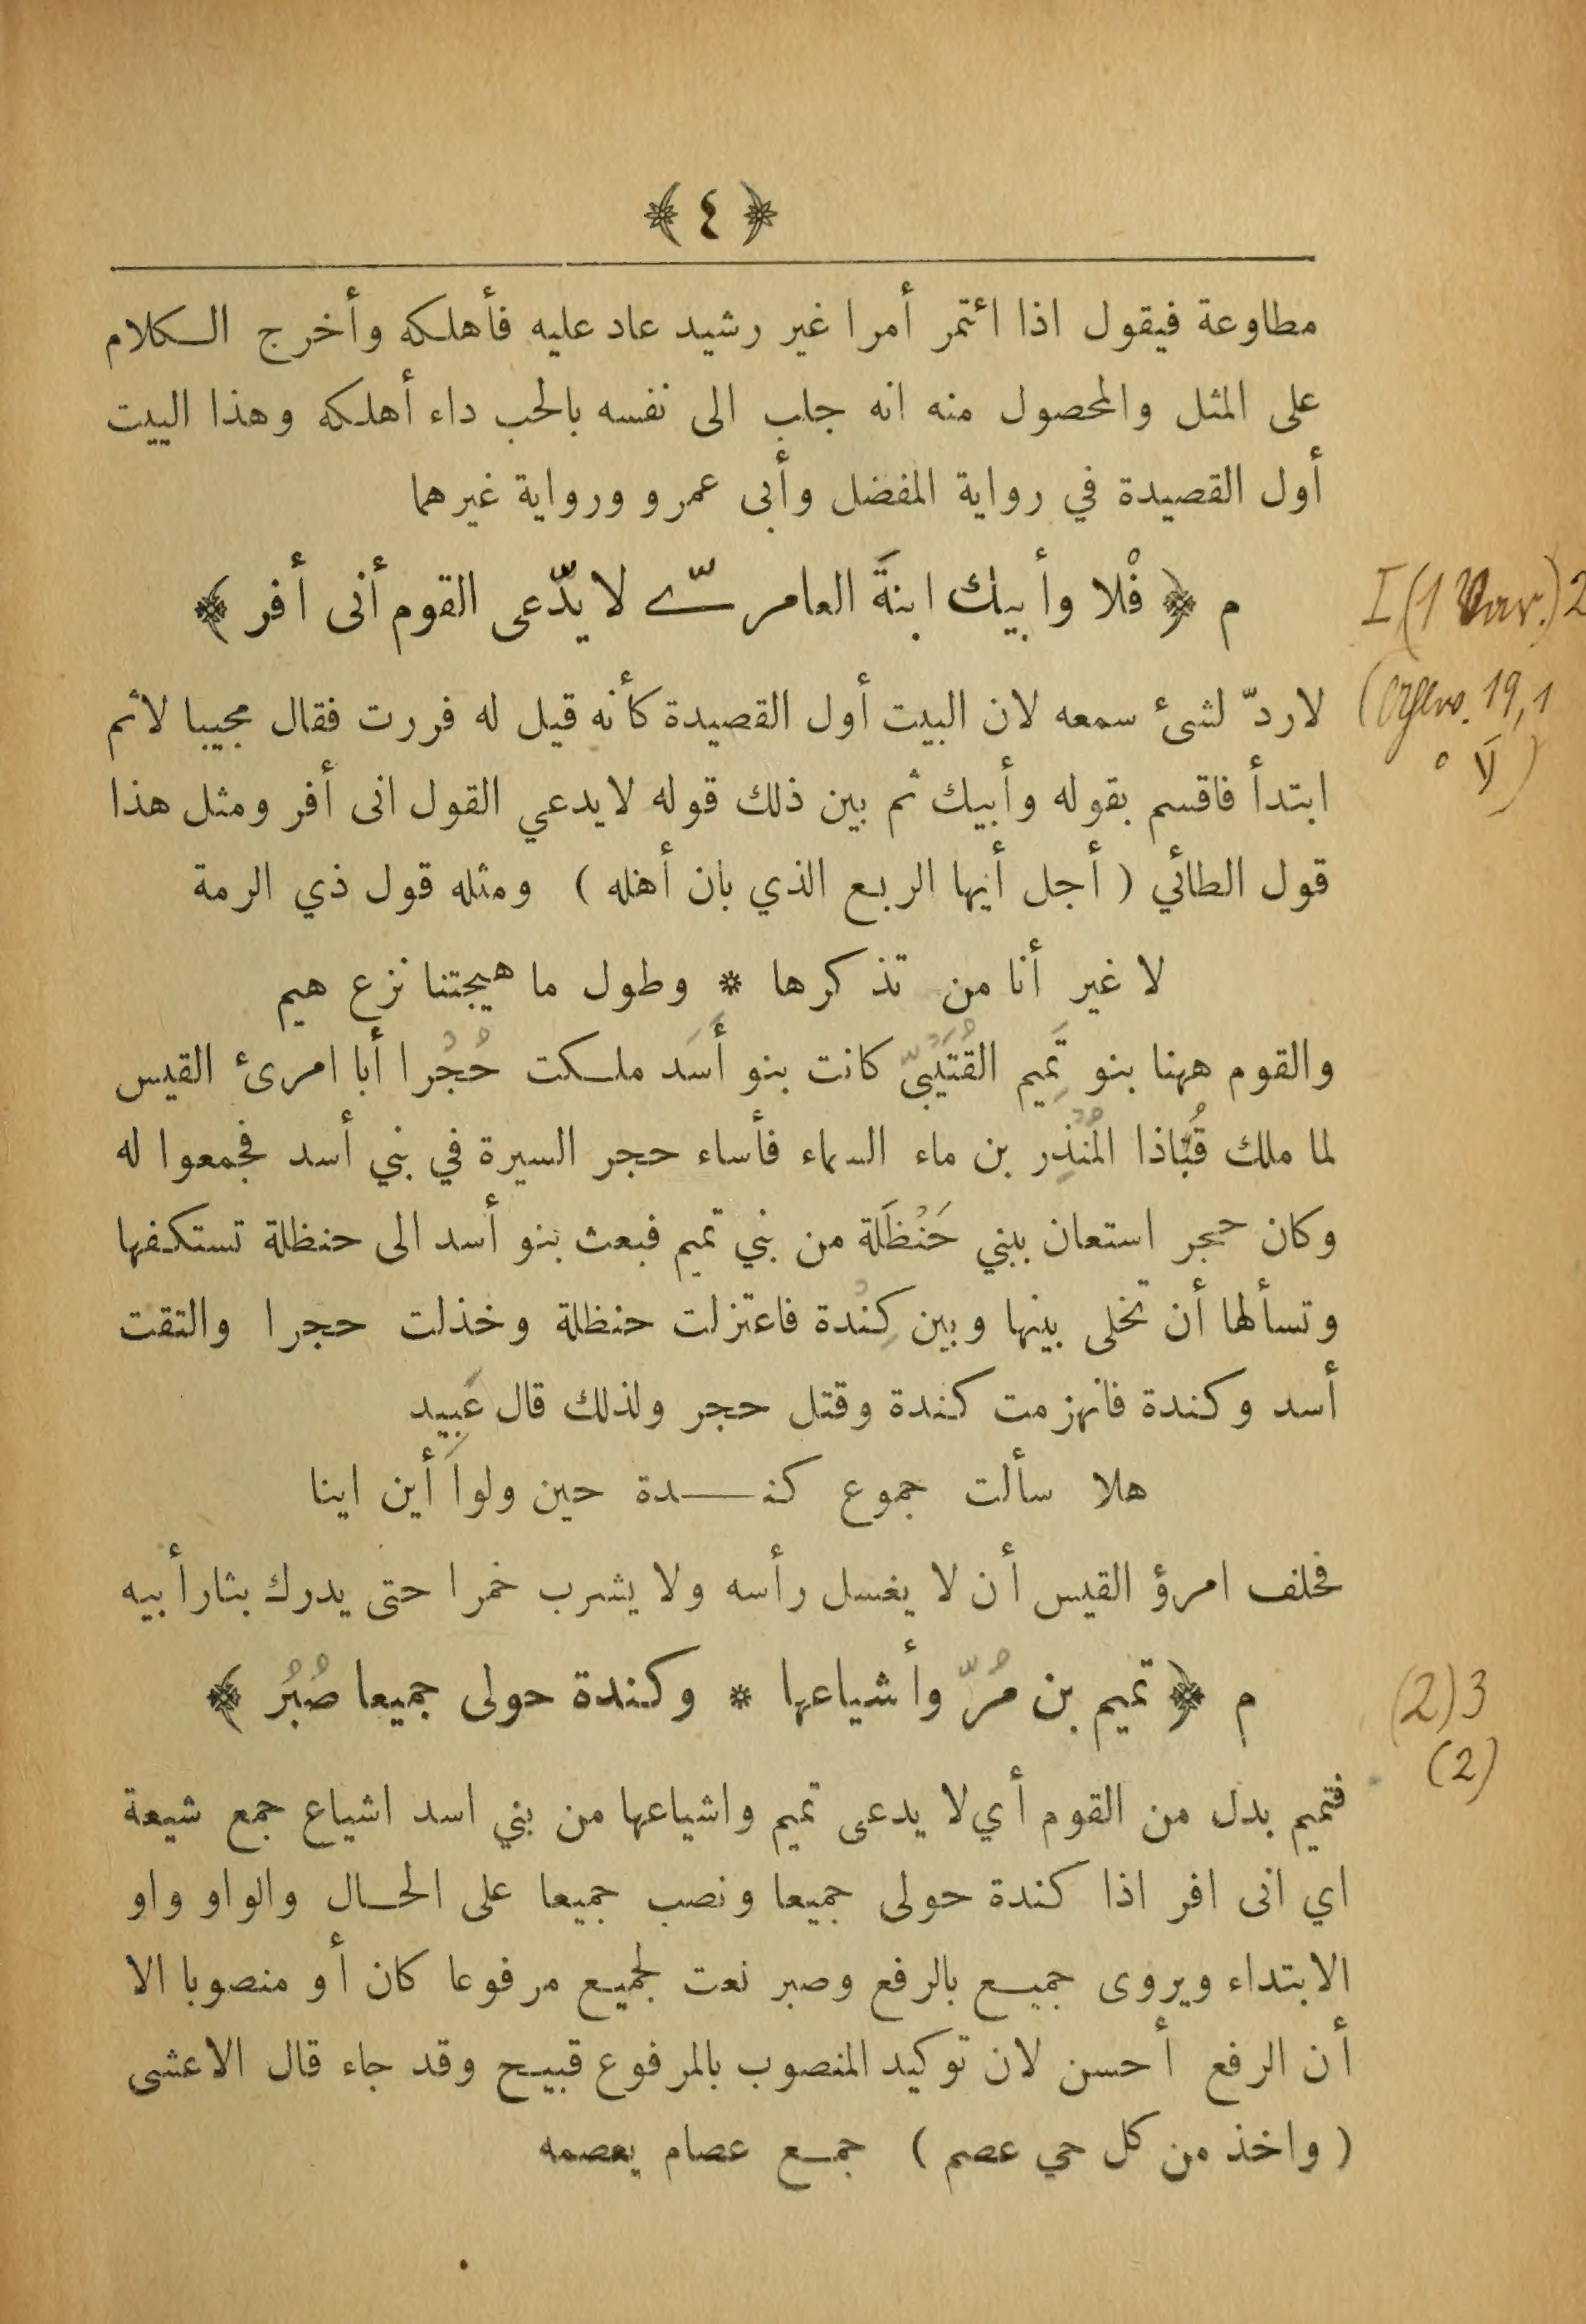 ﴿ ٤ ﴾
مطاوعة فيقول اذا ائتمر أمرا غير رشيد عاد عليه فأهلكه وأخرج الكلام
على المثل والمحصول منه انه جلب الى نفسه بالحب داء أهلكه وهذا البيت
أول القصيدة في رواية المفضل وأبى عمرو ورواية غيرهما
م ﴿ فْلا وأبيك ابنةَ العامرىّ لا يدّعى القوم أنى أفر ﴾
I (1 Var.) 2
لاردّ لشئ سمعه لان البيت أول القصيدة كأنه قيل له فررت فقال مجيبا لائم
19,1
ابتدأ فاقسم بقوله وأبيك ثم بين ذلك قوله لايدعي القول انى أفر ومثل هذا
لَا ٥ )
قول الطائي ( أجل أيها الربع الذي بان أهله ) ومثله قول ذي الرمة
لا غير أنا من تذكرها * وطول ما هيجتنا نزع هيم
والقوم ههنا بنو تَمِيم القُتَيْبىّ كانت بنو أَسَد ملكت حُجْرا أبا امرئ القيس
لما ملك قُبَاذا المُنْذِر بن ماء السماء فأساء حجر السيرة في بني أسد فجمعوا له
وكان حجر استعان ببني حَنْظَلة من بني تميم فبعث بنو أسد الى حنظلة تستكفها
وتسألها أن تخلى بينها وبين كِنْدة فاعتزلت حنظلة وخذلت حجرا والتقت
أسد وكندة فانهزمت كندة وقتل حجر ولذلك قال عَبِيد
هلا سألت جموع كنـــدة حين ولواَ أين اينا
فحلف امرؤ القيس أن لا يغسل رأسه ولا يشرب خمرا حتى يدرك بثار أبيه
م ﴿ تميم بن مُرّ وأشياعها * وكندة حولى جميعا صُبُر ﴾
(2) 3
(2)
فتميم بدل من القوم أي لا يدعى تميم واشياعها من بني اسد اشياع جمع شيعة
اي انى افر اذا كندة حولى جميعا ونصب جميعا على الحال والواو واو
الابتداء ويروى جميع بالرفع وصبر نعت لجميع مرفوعا كان أو منصوبا الا
أن الرفع أحسن لان توكيد المنصوب بالمرفوع قبيح وقد جاء قال الاعشى
( واخذ من كل حي عصم ) جمع عصام يعصمه